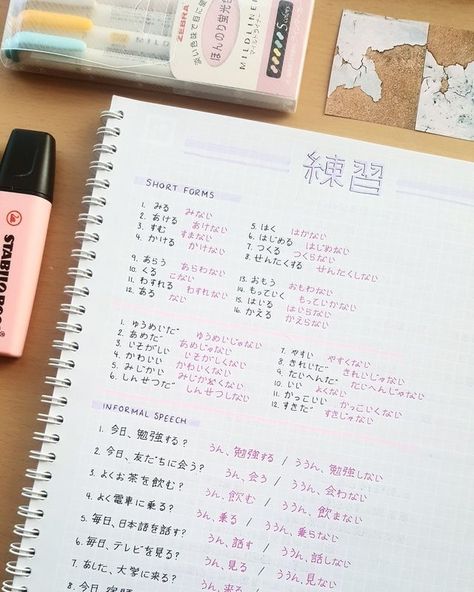 ZEBRA
淡い色味で目に
ほんのり蛍光色
MILDLINER
マイルドライナー
STABILO BOSS
練習
SHORT FORMS
1. みる みない
2. あける あけない
3. すむ すまない
4. かける かけない
5. はく はかない
6. はじめる はじめない
7. つくる つくらない
8. せんたくする せんたくしない
9. あらう あらわない
10. くる こない
11. わすれる わすれない
12. ある ない
13. おもう おもわない
14. もっていく もっていかない
15. はいる はいらない
16. かえる かえらない
1. ゆうめいだ ゆうめいじゃない
2. あめだ あめじゃない
3. いそがしい いそがしくない
4. かわいい かわいくない
5. みじかい みじかくない
6. しんせつだ しんせつしない
7. やすい やすくない
8. きれいだ きれいじゃない
9. たいへんだ たいへんじゃない
10. いい よくない
11. かっこいい かっこいくない
12. すきだ すきじゃない
INFORMAL SPEECH
1. 今日、勉強する? うん、勉強する / ううん、勉強しない
2. 今日、友だちに会う? うん、会う / ううん、会わない
3. よくお茶を飲む? うん、飲む / ううん、飲まない
4. よく電車に乗る? うん、乗る / ううん、乗らない
5. 毎日、日本語を話す? うん、話す / ううん、話しない
6. 毎日、テレビを見る? うん、見る / ううん、見ない
7. あした、大学に来る? うん、来る /
8. 今日